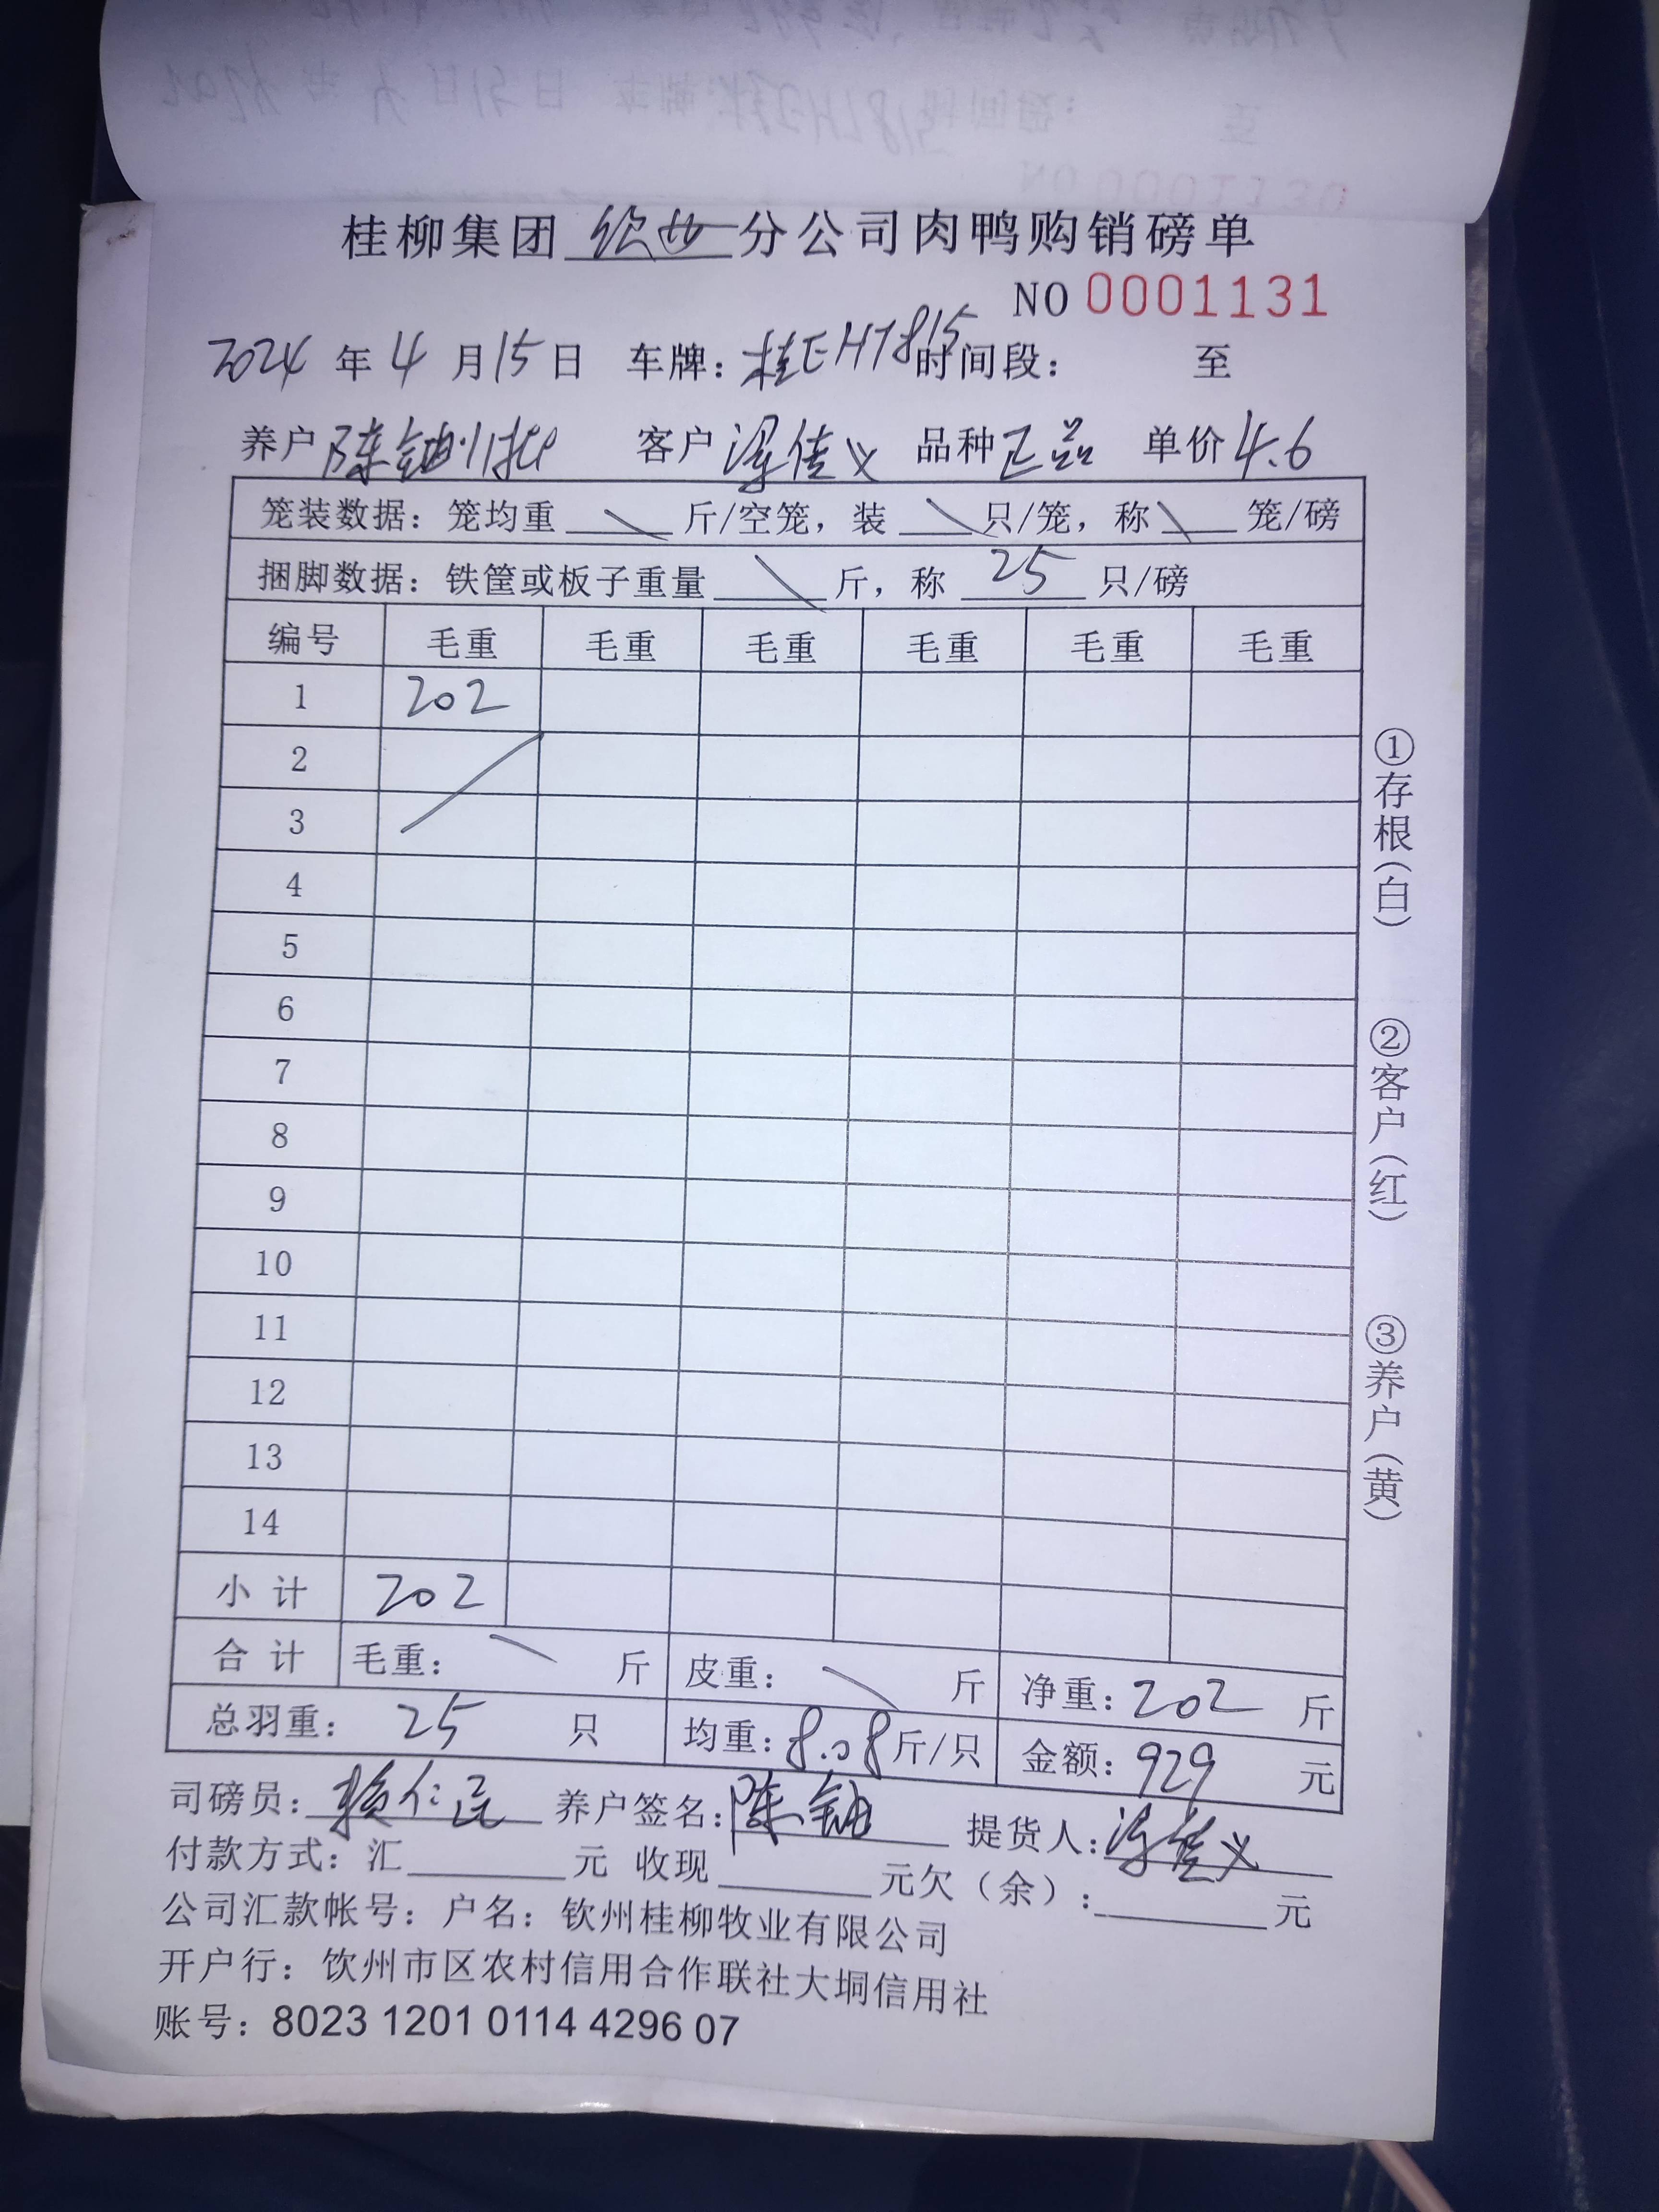 桂柳集团 分公司肉鸭购销磅单
NO 0001131
2024 年 4 月 15 日 车牌：桂EHT815 时间段： 至
养户 陈 客户 佳义 品种 正品 单价 4.6
笼装数据：笼均重 \ 斤/空笼，装 \ 只/笼，称 \ 笼/磅
捆脚数据：铁筐或板子重量 \ 斤，称 25 只/磅
编号 毛重 毛重 毛重 毛重 毛重 毛重
1 202
2
3
4
5
6
7
8
9
10
11
12
13
14
小计 202
合计 毛重： \ 斤 皮重： \ 斤 净重：202 斤
总羽重： 25 只 均重：8.08 斤/只 金额：929 元
司磅员：赖仁 养户签名：陈 提货人： 佳义
付款方式：汇 元 收现 元欠（余）： 元
公司汇款帐号：户名：钦州桂柳牧业有限公司
开户行：钦州市区农村信用合作联社大垌信用社
账号：8023 1201 0114 4296 07
①存根（白）
②客户（红）
③养户（黄）